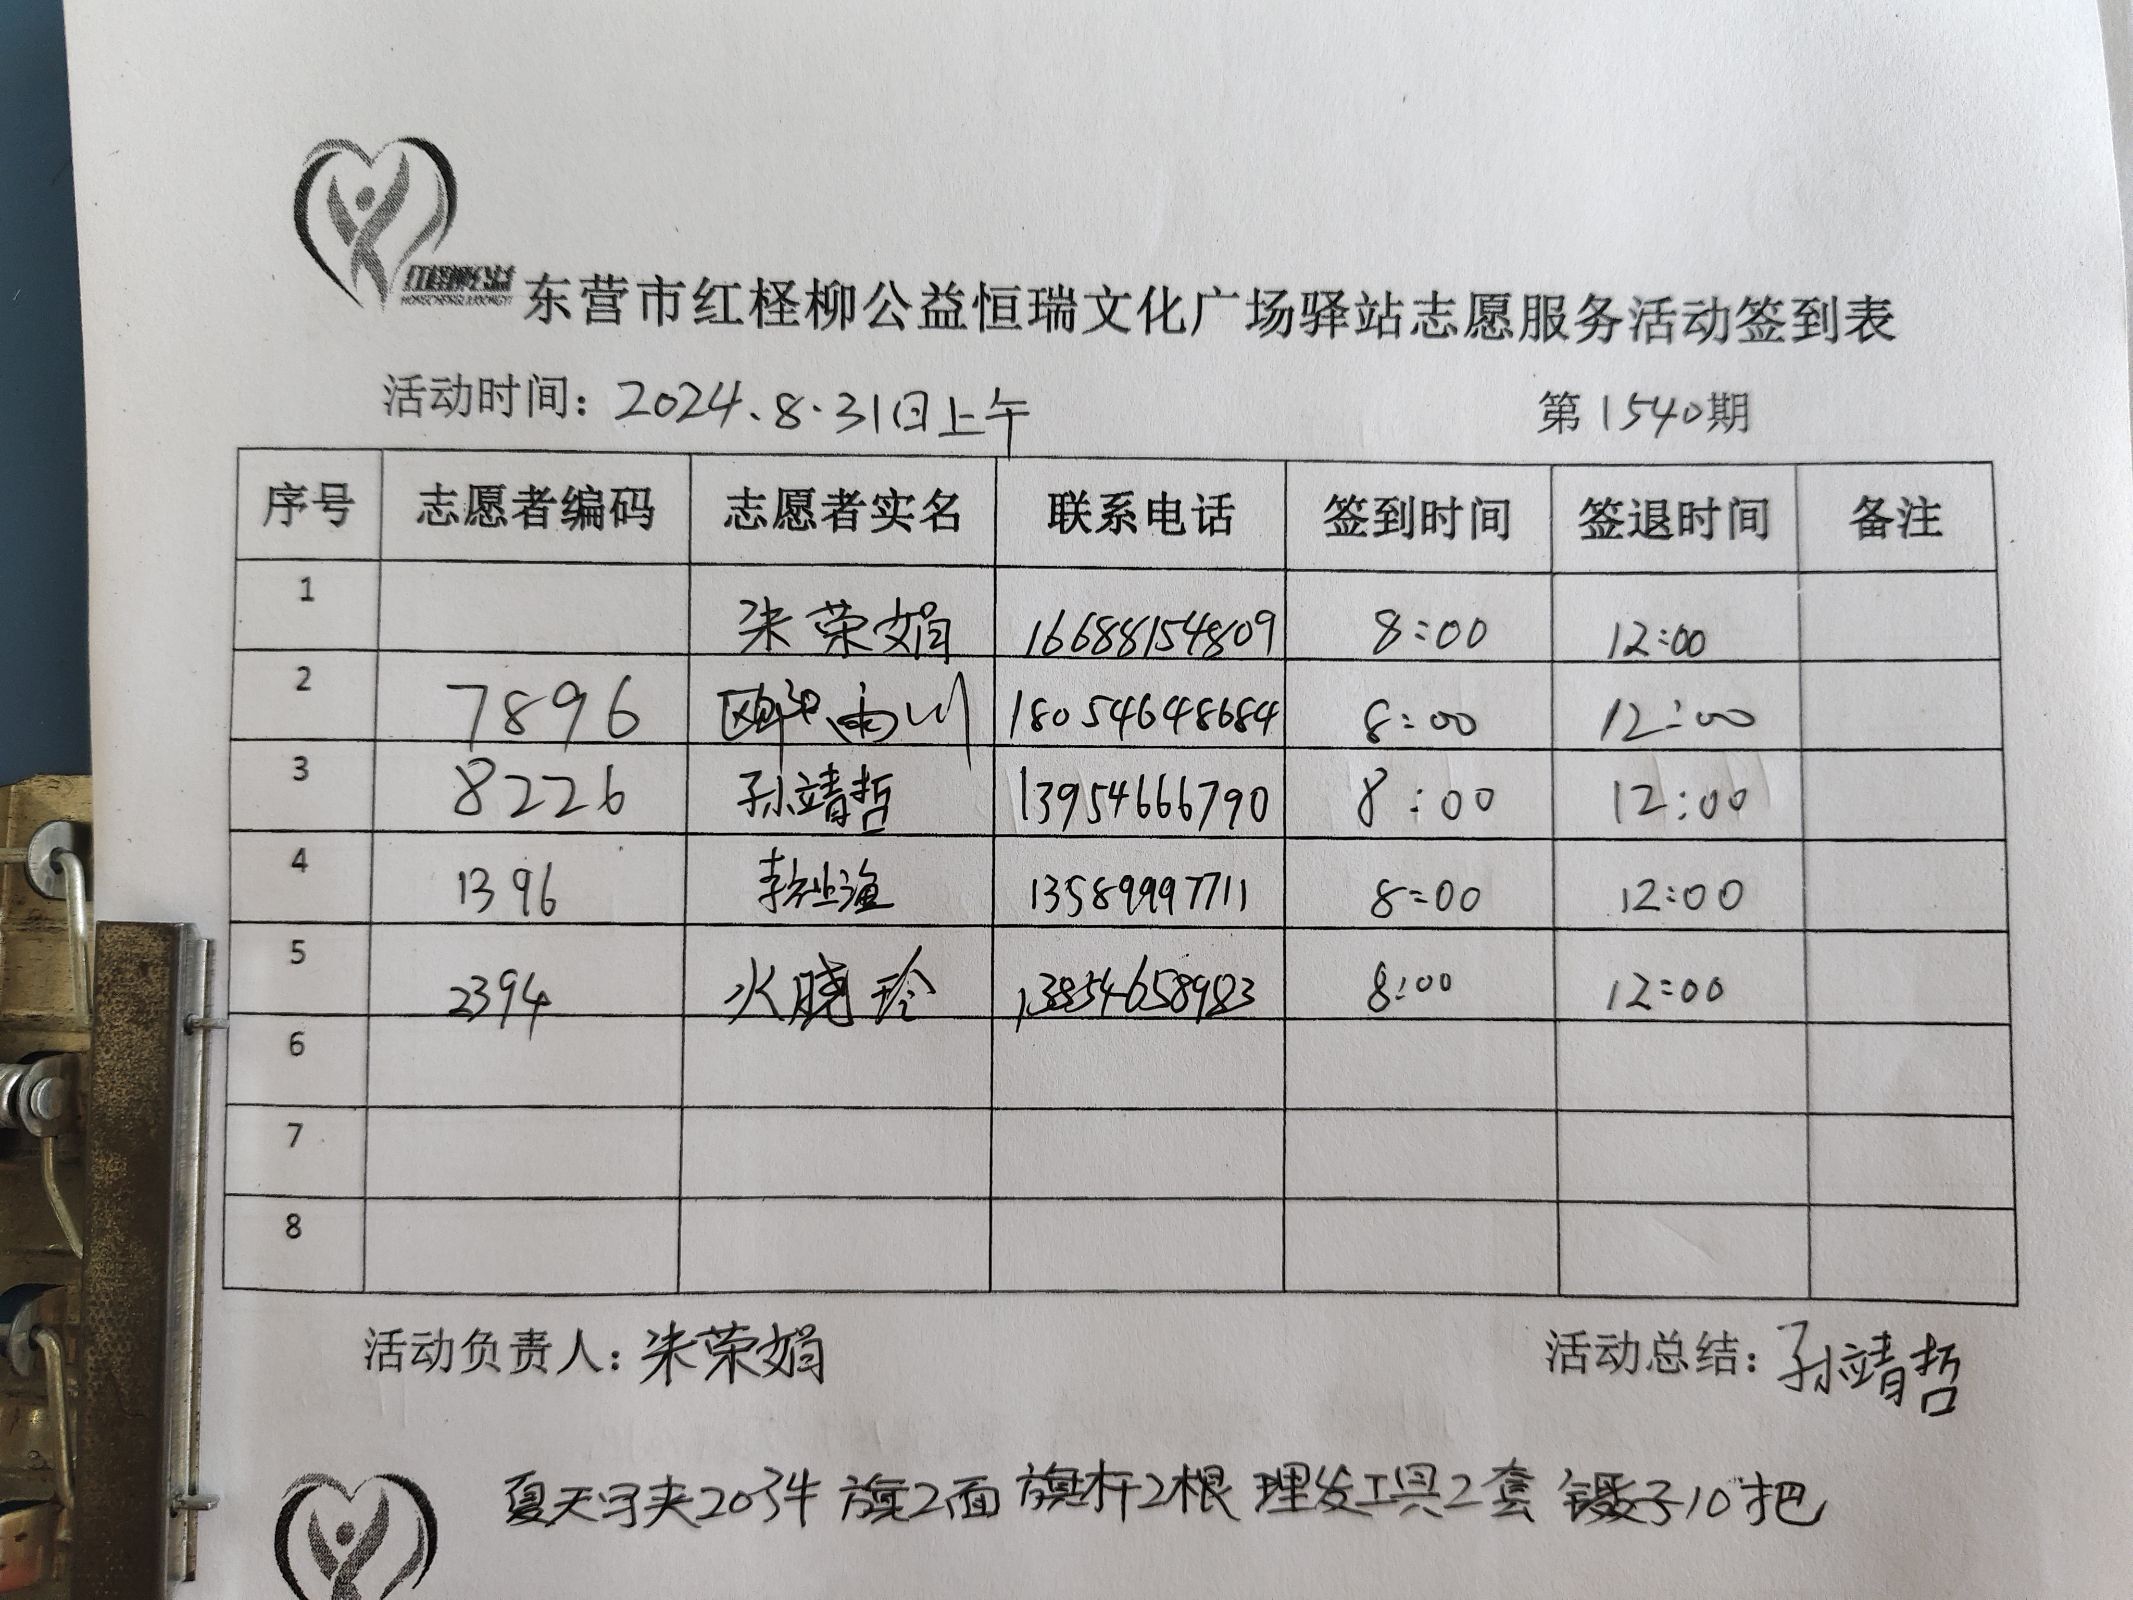 红柽柳公益
东营市红柽柳公益恒瑞文化广场驿站志愿服务活动签到表
活动时间：2024.8.31日上午 第1540期
序号 志愿者编码 志愿者实名 联系电话 签到时间 签退时间 备注
1 朱荣娟 16688154809 8:00 12:00
2 7896 18054648684 8:00 12:00
3 8226 孙靖哲 13954666790 8:00 12:00
4 1396 13589997711 8:00 12:00
5 2394 火晓玲 13854658983 8:00 12:00
6
7
8
活动负责人：朱荣娟 活动总结：孙靖哲
夏天马夹20件 旗2面 旗杆2根 理发工具2套 镊子10把